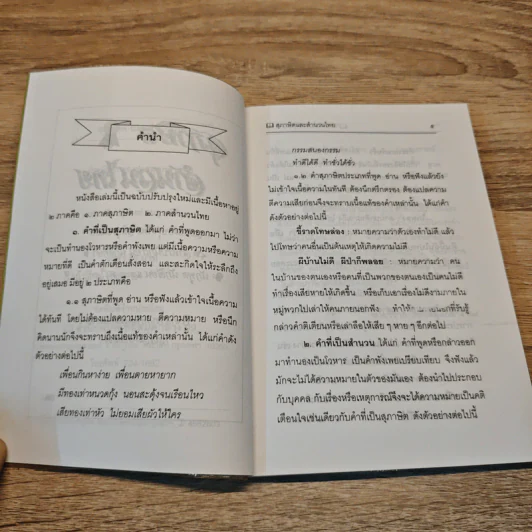 คำนำ
หนังสือเล่มนี้เป็นฉบับปรับปรุงใหม่และมีเนื้อหาอยู่
๒ ภาคคือ ๑. ภาคสุภาษิต ๒. ภาคสำนวนไทย
๑. คำที่เป็นสุภาษิต ได้แก่ คำที่พูดออกมา ไม่ว่า
จะเป็นทำนองโวหารหรือคำพังเพย แต่มีเนื้อความหรือความ
หมายที่ดี เป็นคำตักเตือนสั่งสอน และสะกิดใจให้ระลึกถึง
อยู่เสมอ มีอยู่ ๒ ประเภทคือ
๑.๑ สุภาษิตที่พูด อ่าน หรือฟังแล้วเข้าใจเนื้อความ
ได้ทันที โดยไม่ต้องแปลความหมาย ตีความหมาย หรือนึก
คิดนานนักจึงจะทราบถึงเนื้อแท้ของคำเหล่านั้น ได้แก่คำดัง
ตัวอย่างต่อไปนี้
เพื่อนกินหาง่าย เพื่อนตายหายาก
มีทองเท่าหนวดกุ้ง นอนสะดุ้งจนเรือนไหว
เสียทองเท่าหัว ไม่ยอมเสียผัวให้ใคร
สุภาษิตและสำนวนไทย
กรรมสนองกรรม
ทำดีได้ดี ทำชั่วได้ชั่ว
๑.๒ คำสุภาษิตประเภทที่พูด อ่าน หรือฟังแล้วยัง
ไม่เข้าใจเนื้อความในทันที ต้องนึกตรึกตรอง ต้องแปลความ
ตีความเสียก่อนจึงจะทราบเนื้อแท้ของคำเหล่านั้น ได้แก่คำ
ดังตัวอย่างต่อไปนี้
ขี้ราดโทษล่อง : หมายความว่าตัวเองทำไม่ดี แล้ว
ไปโทษว่าคนอื่นเป็นต้นเหตุให้เกิดความไม่ดี
ผีบ้านไม่ดี ผีป่าก็พลอย : หมายความว่า คน
ในบ้านของตนเองหรือคนที่เป็นพวกของตนเองเป็นคนไม่ดี
ทำเรื่องเสียหายให้เกิดขึ้น หรือเก็บเอาเรื่องไม่ดีงามภายใน
หมู่พวกไปเล่าให้คนภายนอกฟัง ทำให้ที่รับรู้
กล่าวคำติเตียนหรือเล่าลือให้เสีย ๆ หาย ๆ อีกต่อไป
๒. คำที่เป็นสำนวน ได้แก่ คำที่พูดหรือกล่าวออก
มาทำนองเป็นโวหาร เป็นคำพังเพยเปรียบเทียบ จึงฟังแล้ว
มักจะไม่ได้ความหมายในตัวของมันเอง ต้องนำไปประกอบ
กับบุคคล กับเรื่องหรือเหตุการณ์จึงจะได้ความหมายเป็นคติ
เตือนใจเช่นเดียวกับคำที่เป็นสุภาษิต ดังตัวอย่างต่อไปนี้